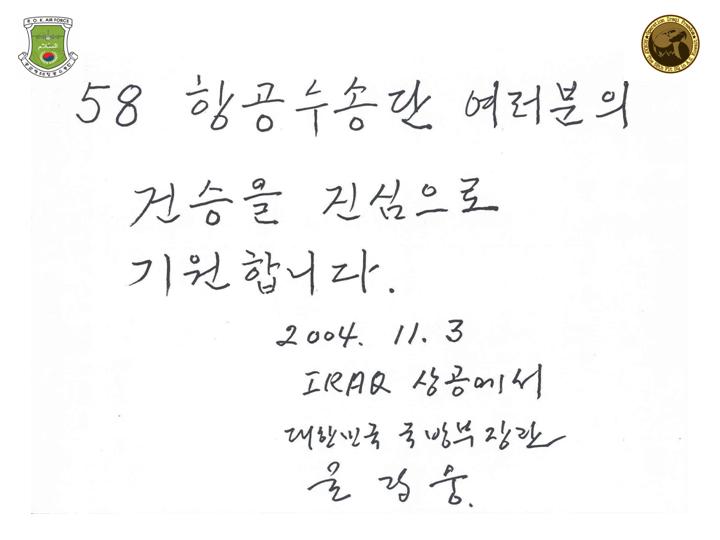 R.O.K AIR FORCE
58 항공수송단 여러분의
건승을 진심으로
기원합니다.
2004. 11. 3
IRAQ 상공에서
대한민국 국방부장관
윤 광 웅.